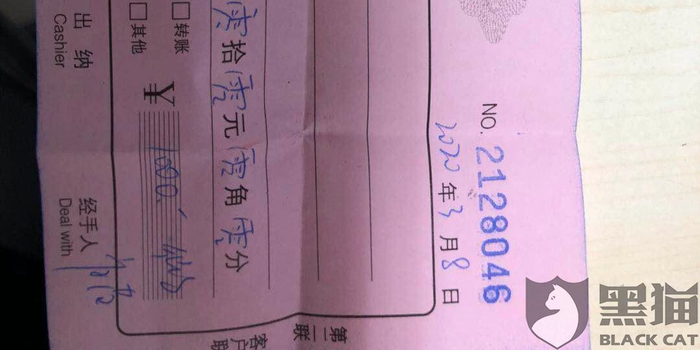 NO. 2128046
2020年3月8日
零拾零元零角零分
转账
其他
¥ 1000.
出纳
Cashier
经手人
Deal with
第二联
客户联
黑猫
BLACK CAT